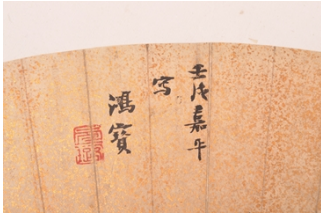 壬戌嘉平
写
鴻寶